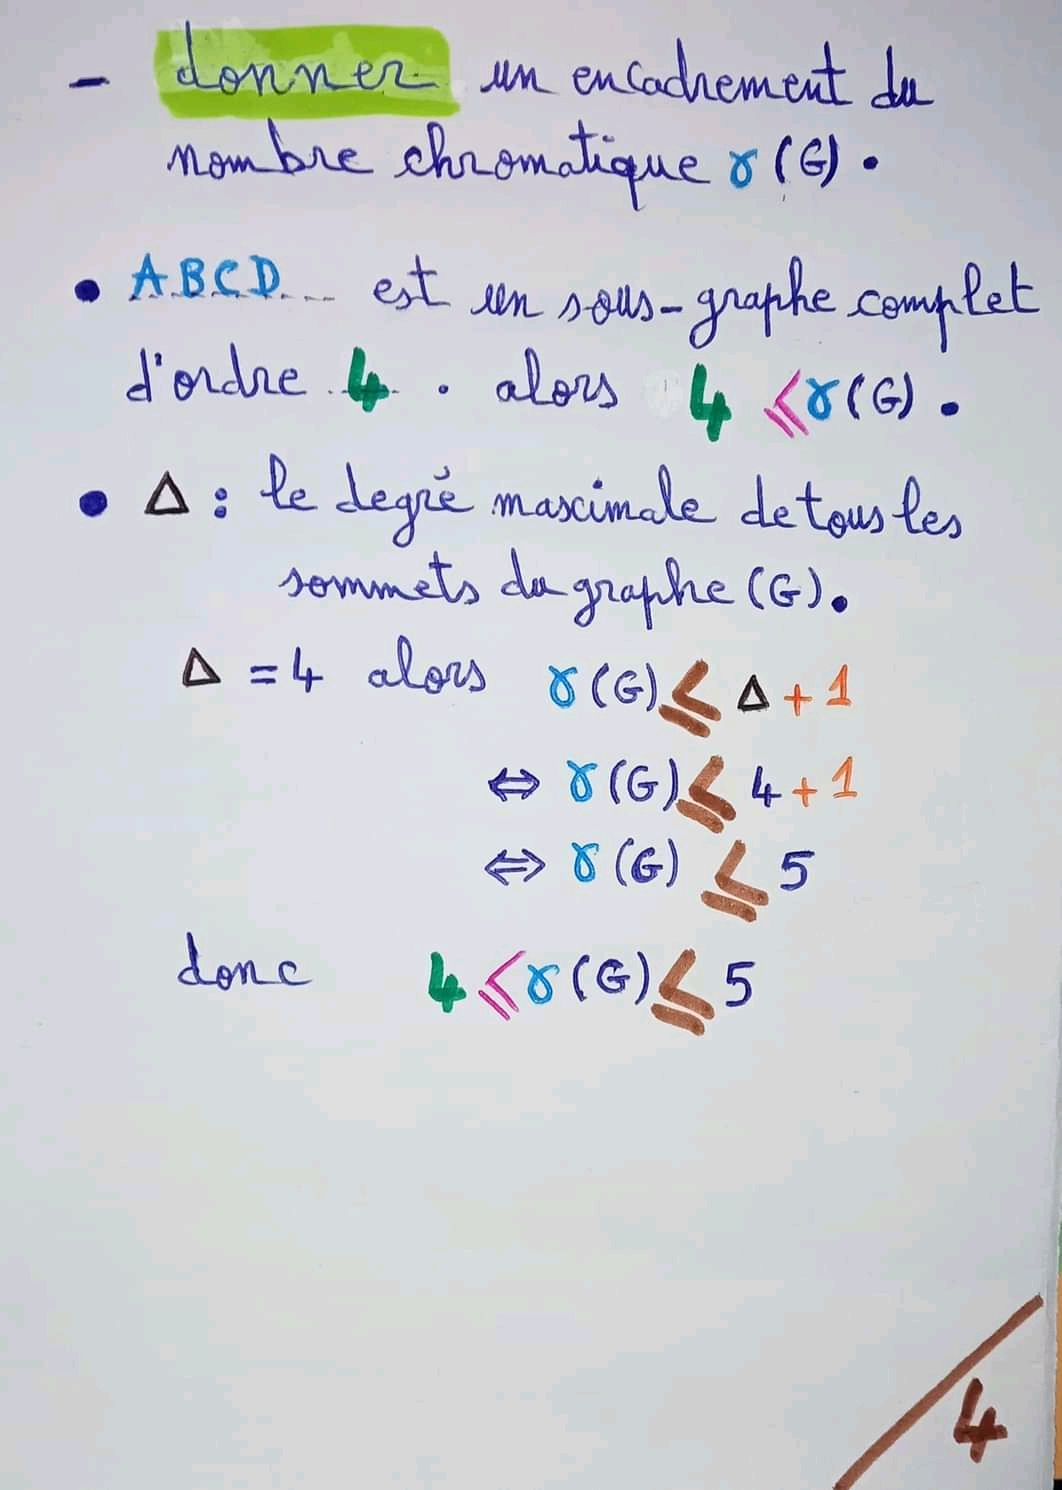 - donner un encadrement du
nombre chromatique γ(G).
• ABCD est un sous-graphe complet
d'ordre 4. alors 4 ≤ γ(G).
• Δ : le degré maximale de tous les
sommets du graphe (G).
Δ = 4 alors γ(G) ≤ Δ + 1
⇔ γ(G) ≤ 4 + 1
⇔ γ(G) ≤ 5
donc 4 ≤ γ(G) ≤ 5
4